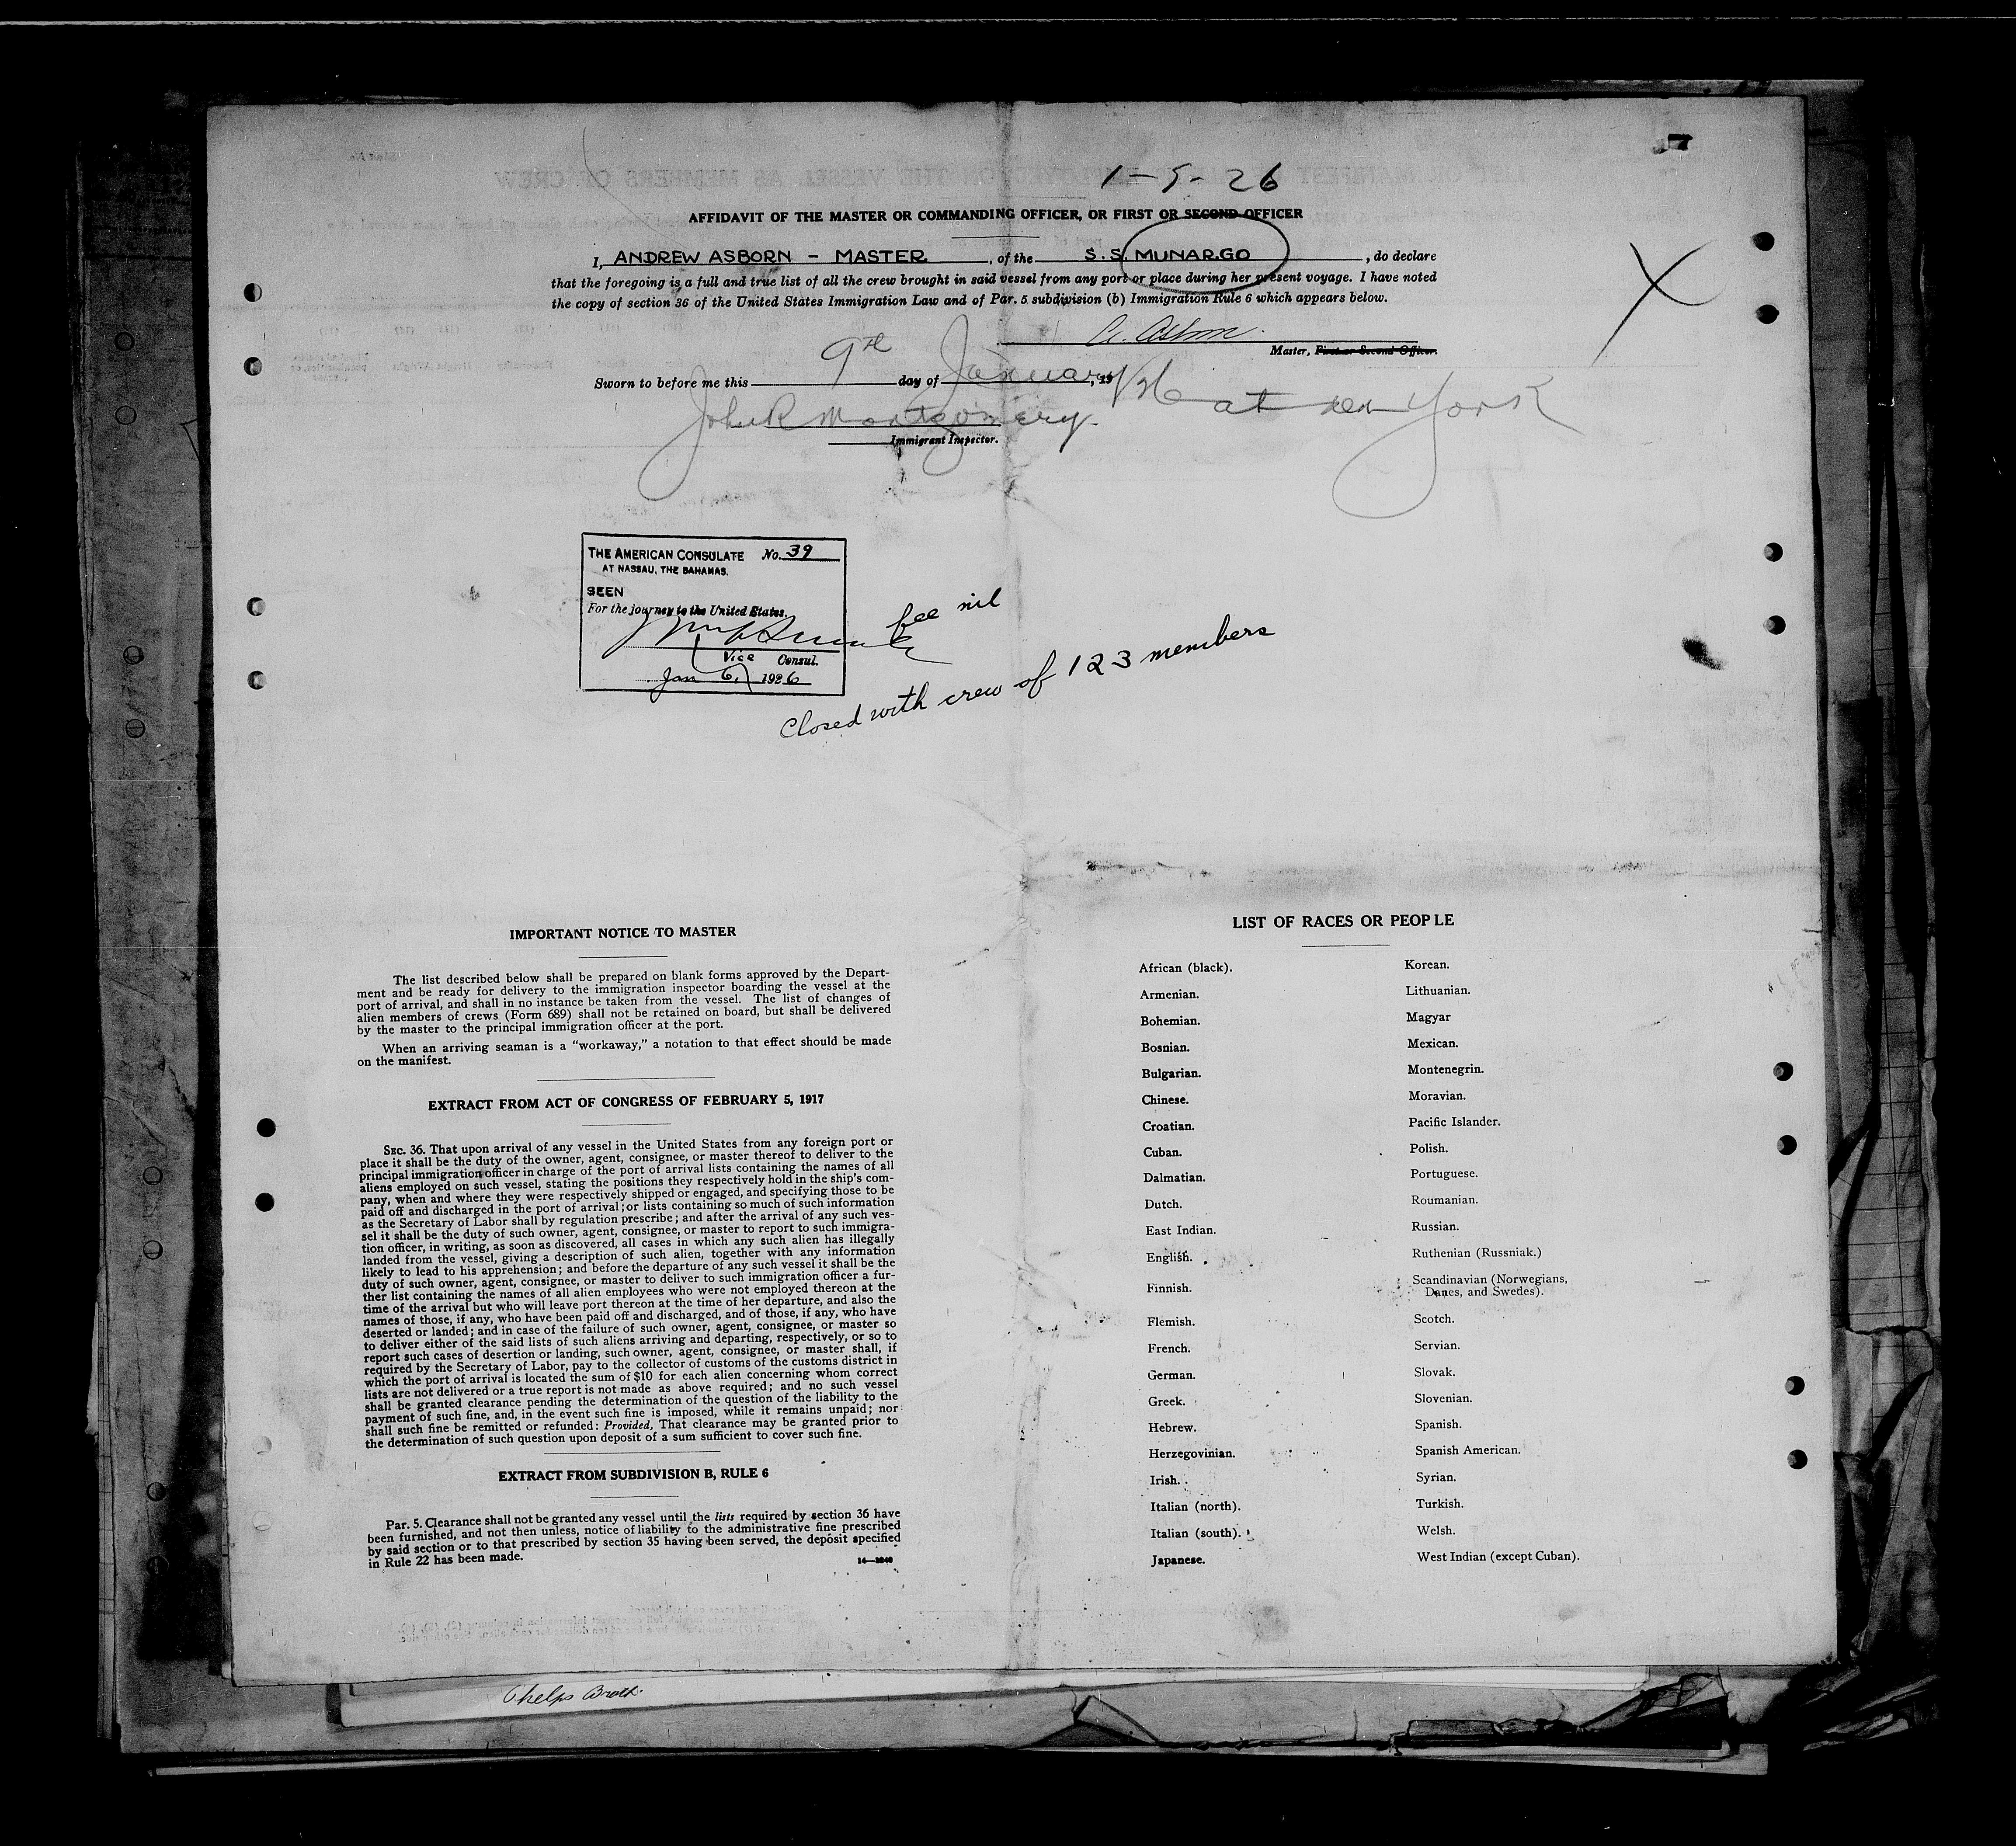 1-9-26
AFFIDAVIT OF THE MASTER OR COMMANDING OFFICER, OR FIRST OR SECOND OFFICER
I, ANDREW ASBORN - MASTER, of the S. S. MUNARGO, do declare
that the foregoing is a full and true list of all the crew brought in said vessel from any port or place during her present voyage. I have noted
the copy of section 36 of the United States Immigration Law and of Par. 5 subdivision (b) Immigration Rule 6 which appears below.
A. Asborn.
Master, First or Second Officer.
Sworn to before me this 9th day of January, 1926 at New York
John R Montgomery
Immigrant Inspector.
THE AMERICAN CONSULATE No. 39
AT NASSAU, THE BAHAMAS.
SEEN
For the journey to the United States.
fee nil
Vice Consul.
Jan 6, 1926
Closed with crew of 123 members
IMPORTANT NOTICE TO MASTER
The list described below shall be prepared on blank forms approved by the Depart-
ment and be ready for delivery to the immigration inspector boarding the vessel at the
port of arrival, and shall in no instance be taken from the vessel. The list of changes of
alien members of crews (Form 689) shall not be retained on board, but shall be delivered
by the master to the principal immigration officer at the port.
When an arriving seaman is a "workaway," a notation to that effect should be made
on the manifest.
EXTRACT FROM ACT OF CONGRESS OF FEBRUARY 5, 1917
SEC. 36. That upon arrival of any vessel in the United States from any foreign port or
place it shall be the duty of the owner, agent, consignee, or master thereof to deliver to the
principal immigration officer in charge of the port of arrival lists containing the names of all
aliens employed on such vessel, stating the positions they respectively hold in the ship's com-
pany, when and where they were respectively shipped or engaged, and specifying those to be
paid off and discharged in the port of arrival; or lists containing so much of such information
as the Secretary of Labor shall by regulation prescribe; and after the arrival of any such ves-
sel it shall be the duty of such owner, agent, consignee, or master to report to such immigra-
tion officer, in writing, as soon as discovered, all cases in which any such alien has illegally
landed from the vessel, giving a description of such alien, together with any information
likely to lead to his apprehension; and before the departure of any such vessel it shall be the
duty of such owner, agent, consignee, or master to deliver to such immigration officer a fur-
ther list containing the names of all alien employees who were not employed thereon at the
time of the arrival but who will leave port thereon at the time of her departure, and also the
names of those, if any, who have been paid off and discharged, and of those, if any, who have
deserted or landed; and in case of the failure of such owner, agent, consignee, or master so
to deliver either of the said lists of such aliens arriving and departing, respectively, or so to
report such cases of desertion or landing, such owner, agent, consignee, or master shall, if
required by the Secretary of Labor, pay to the collector of customs of the customs district in
which the port of arrival is located the sum of $10 for each alien concerning whom correct
lists are not delivered or a true report is not made as above required; and no such vessel
shall be granted clearance pending the determination of the question of the liability to the
payment of such fine, and, in the event such fine is imposed, while it remains unpaid; nor
shall such fine be remitted or refunded: Provided, That clearance may be granted prior to
the determination of such question upon deposit of a sum sufficient to cover such fine.
EXTRACT FROM SUBDIVISION B, RULE 6
Par. 5. Clearance shall not be granted any vessel until the lists required by section 36 have
been furnished, and not then unless, notice of liability to the administrative fine prescribed
by said section or to that prescribed by section 35 having been served, the deposit specified
in Rule 22 has been made.
14—1240
LIST OF RACES OR PEOPLE
African (black).
Armenian.
Bohemian.
Bosnian.
Bulgarian.
Chinese.
Croatian.
Cuban.
Dalmatian.
Dutch.
East Indian.
English.
Finnish.
Flemish.
French.
German.
Greek.
Hebrew.
Herzegovinian.
Irish.
Italian (north).
Italian (south).
Japanese.
Korean.
Lithuanian.
Magyar
Mexican.
Montenegrin.
Moravian.
Pacific Islander.
Polish.
Portuguese.
Roumanian.
Russian.
Ruthenian (Russniak.)
Scandinavian (Norwegians,
Danes, and Swedes).
Scotch.
Servian.
Slovak.
Slovenian.
Spanish.
Spanish American.
Syrian.
Turkish.
Welsh.
West Indian (except Cuban).
Phelps Broth.